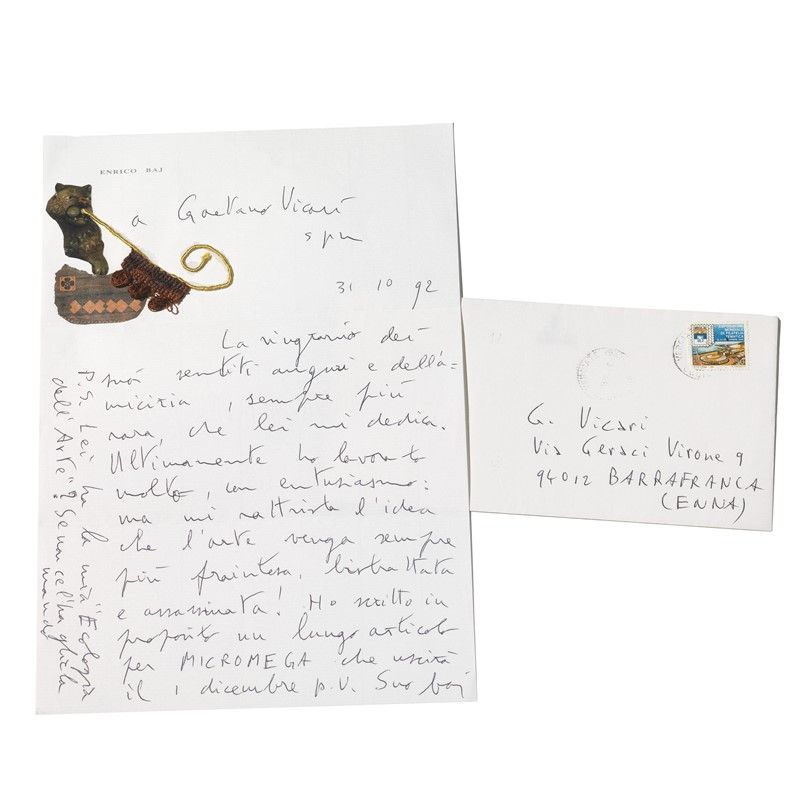 ENRICO BAJ
a Gaetano Vicari
s p m
31 10 92
La ringrazio dei
suoi sentiti auguri e dell'a=
micizia, sempre più
rara, che lei mi dedica.
Ultimamente ho lavorato
molto, con entusiasmo:
ma mi rattrista l'idea
che l'arte venga sempre
più fraintesa, bistrattata
e assassinata! Ho scritto in
proposito un lungo articolo
per MICROMEGA che uscirà
il 1 dicembre p.v. Suo baj
P.S. Lei ha la mia "Ecologia
dell'Arte"? Se non ce l'ha gliela
mando
G. Vicari
Via Geraci Virone 9
94012 BARRAFRANCA
(ENNA)